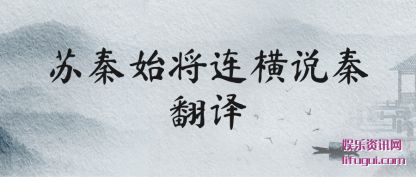 苏秦始将连横说秦
翻译
娱乐资讯网
lifugui.com